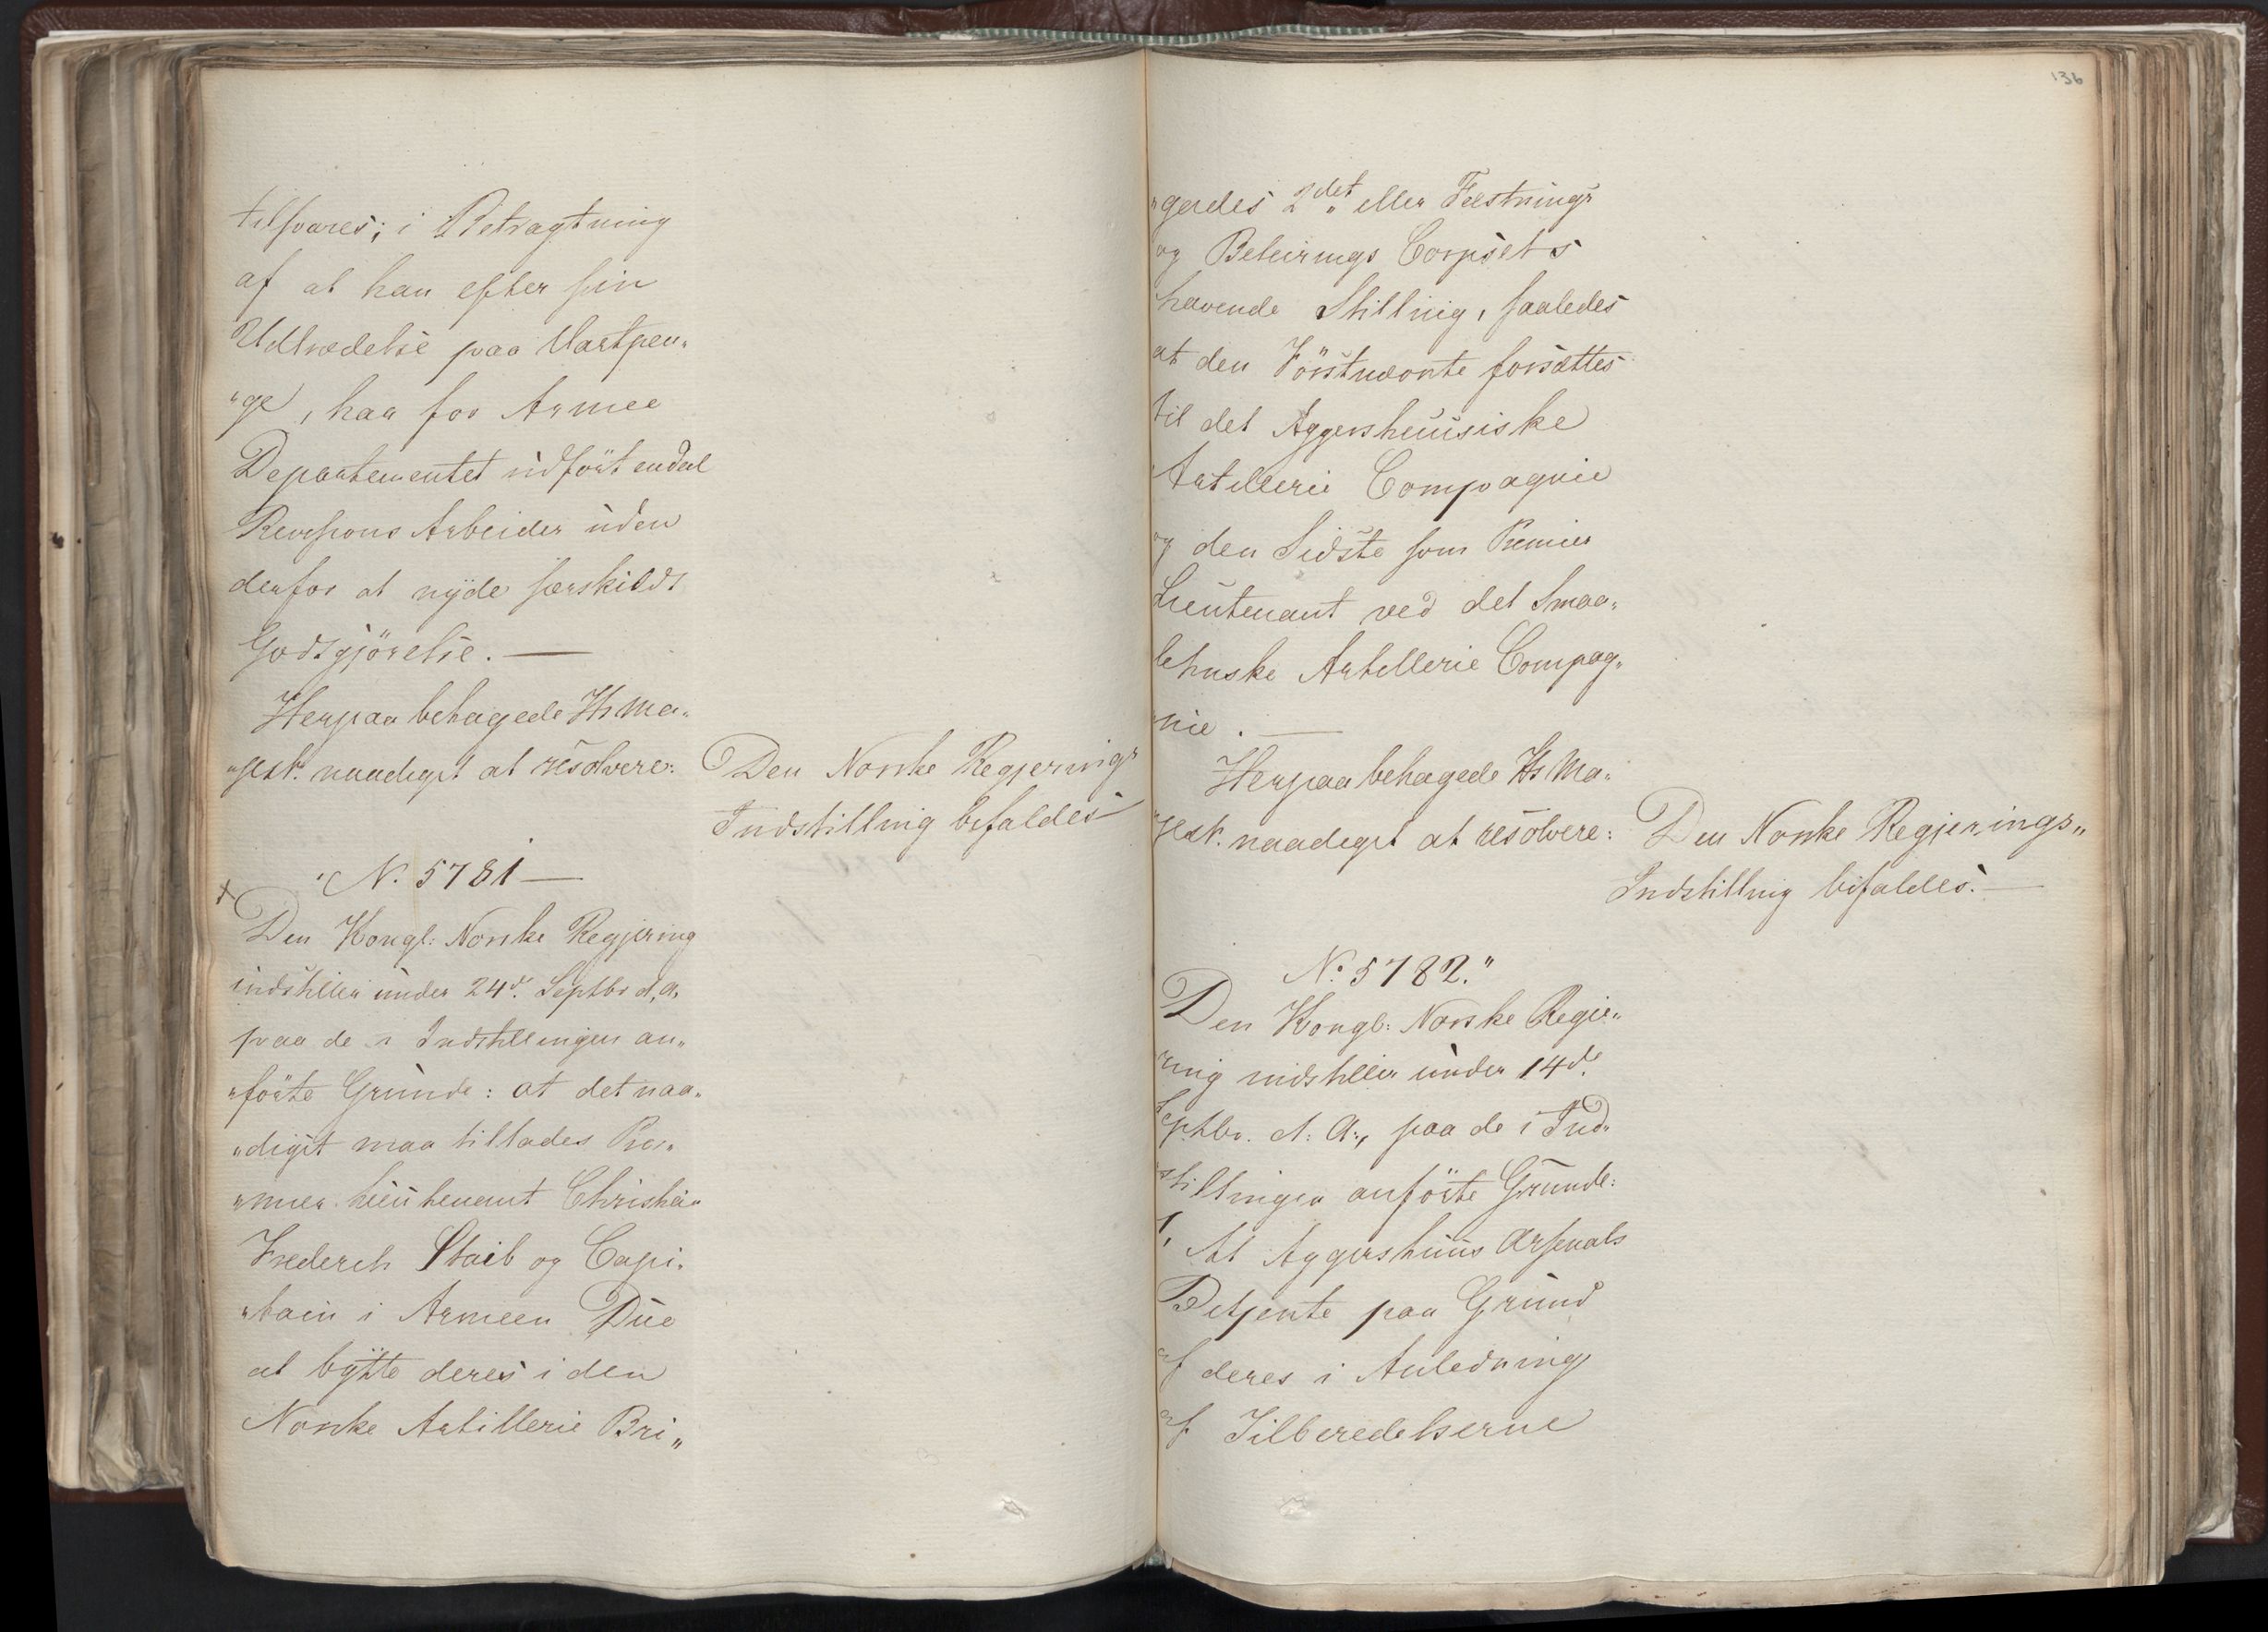 tilsvares; i Betragtning
af at han efter sin
Udtrædelse paa Vartpen„
„ge, har for Armee
Departementet udført endeel
Revisions Arbeider uden
derfor at nyde særskildt
Godtgjørelse. —
Herpaa behagede Hs Ma„
„jest. naadigst at resolvere:
Den Norske Regjerings
Indstilling bifaldes
N. 5781 —
Den Kongl: Norske Regjering
indstiller under 24d. Septbr d. A.
paa de i Indstillingen an„
„førte Grunde: at det naa„
„digst maa tillades Pre„
„mier Lieutenant Christian
Frederch Staib og Capi„
„tain i Armeen Due
at bytte deres i den
Norske Artillerie Bri„
136
„gades 2det eller Festnings
og Beleirings Corpsets
havende Stilling, saaledes
at den Förstnævnte forsættes
til det Aggershuusiske
Artillerie Compagnie
og den Sidste som Premier
Lieutenant ved det Smaa„
lehnske Artillerie Compag„
„nie. —
Herpaa behagede Hs Ma„
„jest. naadigst at resolvere:
Den Norske Regjerings„
Indstilling bifaldes. —
No 5782."
Den Kongl: Norske Regie„
„ring indstiller under 14de
Septbr. d: A:, paa de i Ind„
„stillingen anförte Grunde:
1, At Aggershuus Arsenals
Betjente paa Grund
af deres i Anledning
af Tilberedelserne